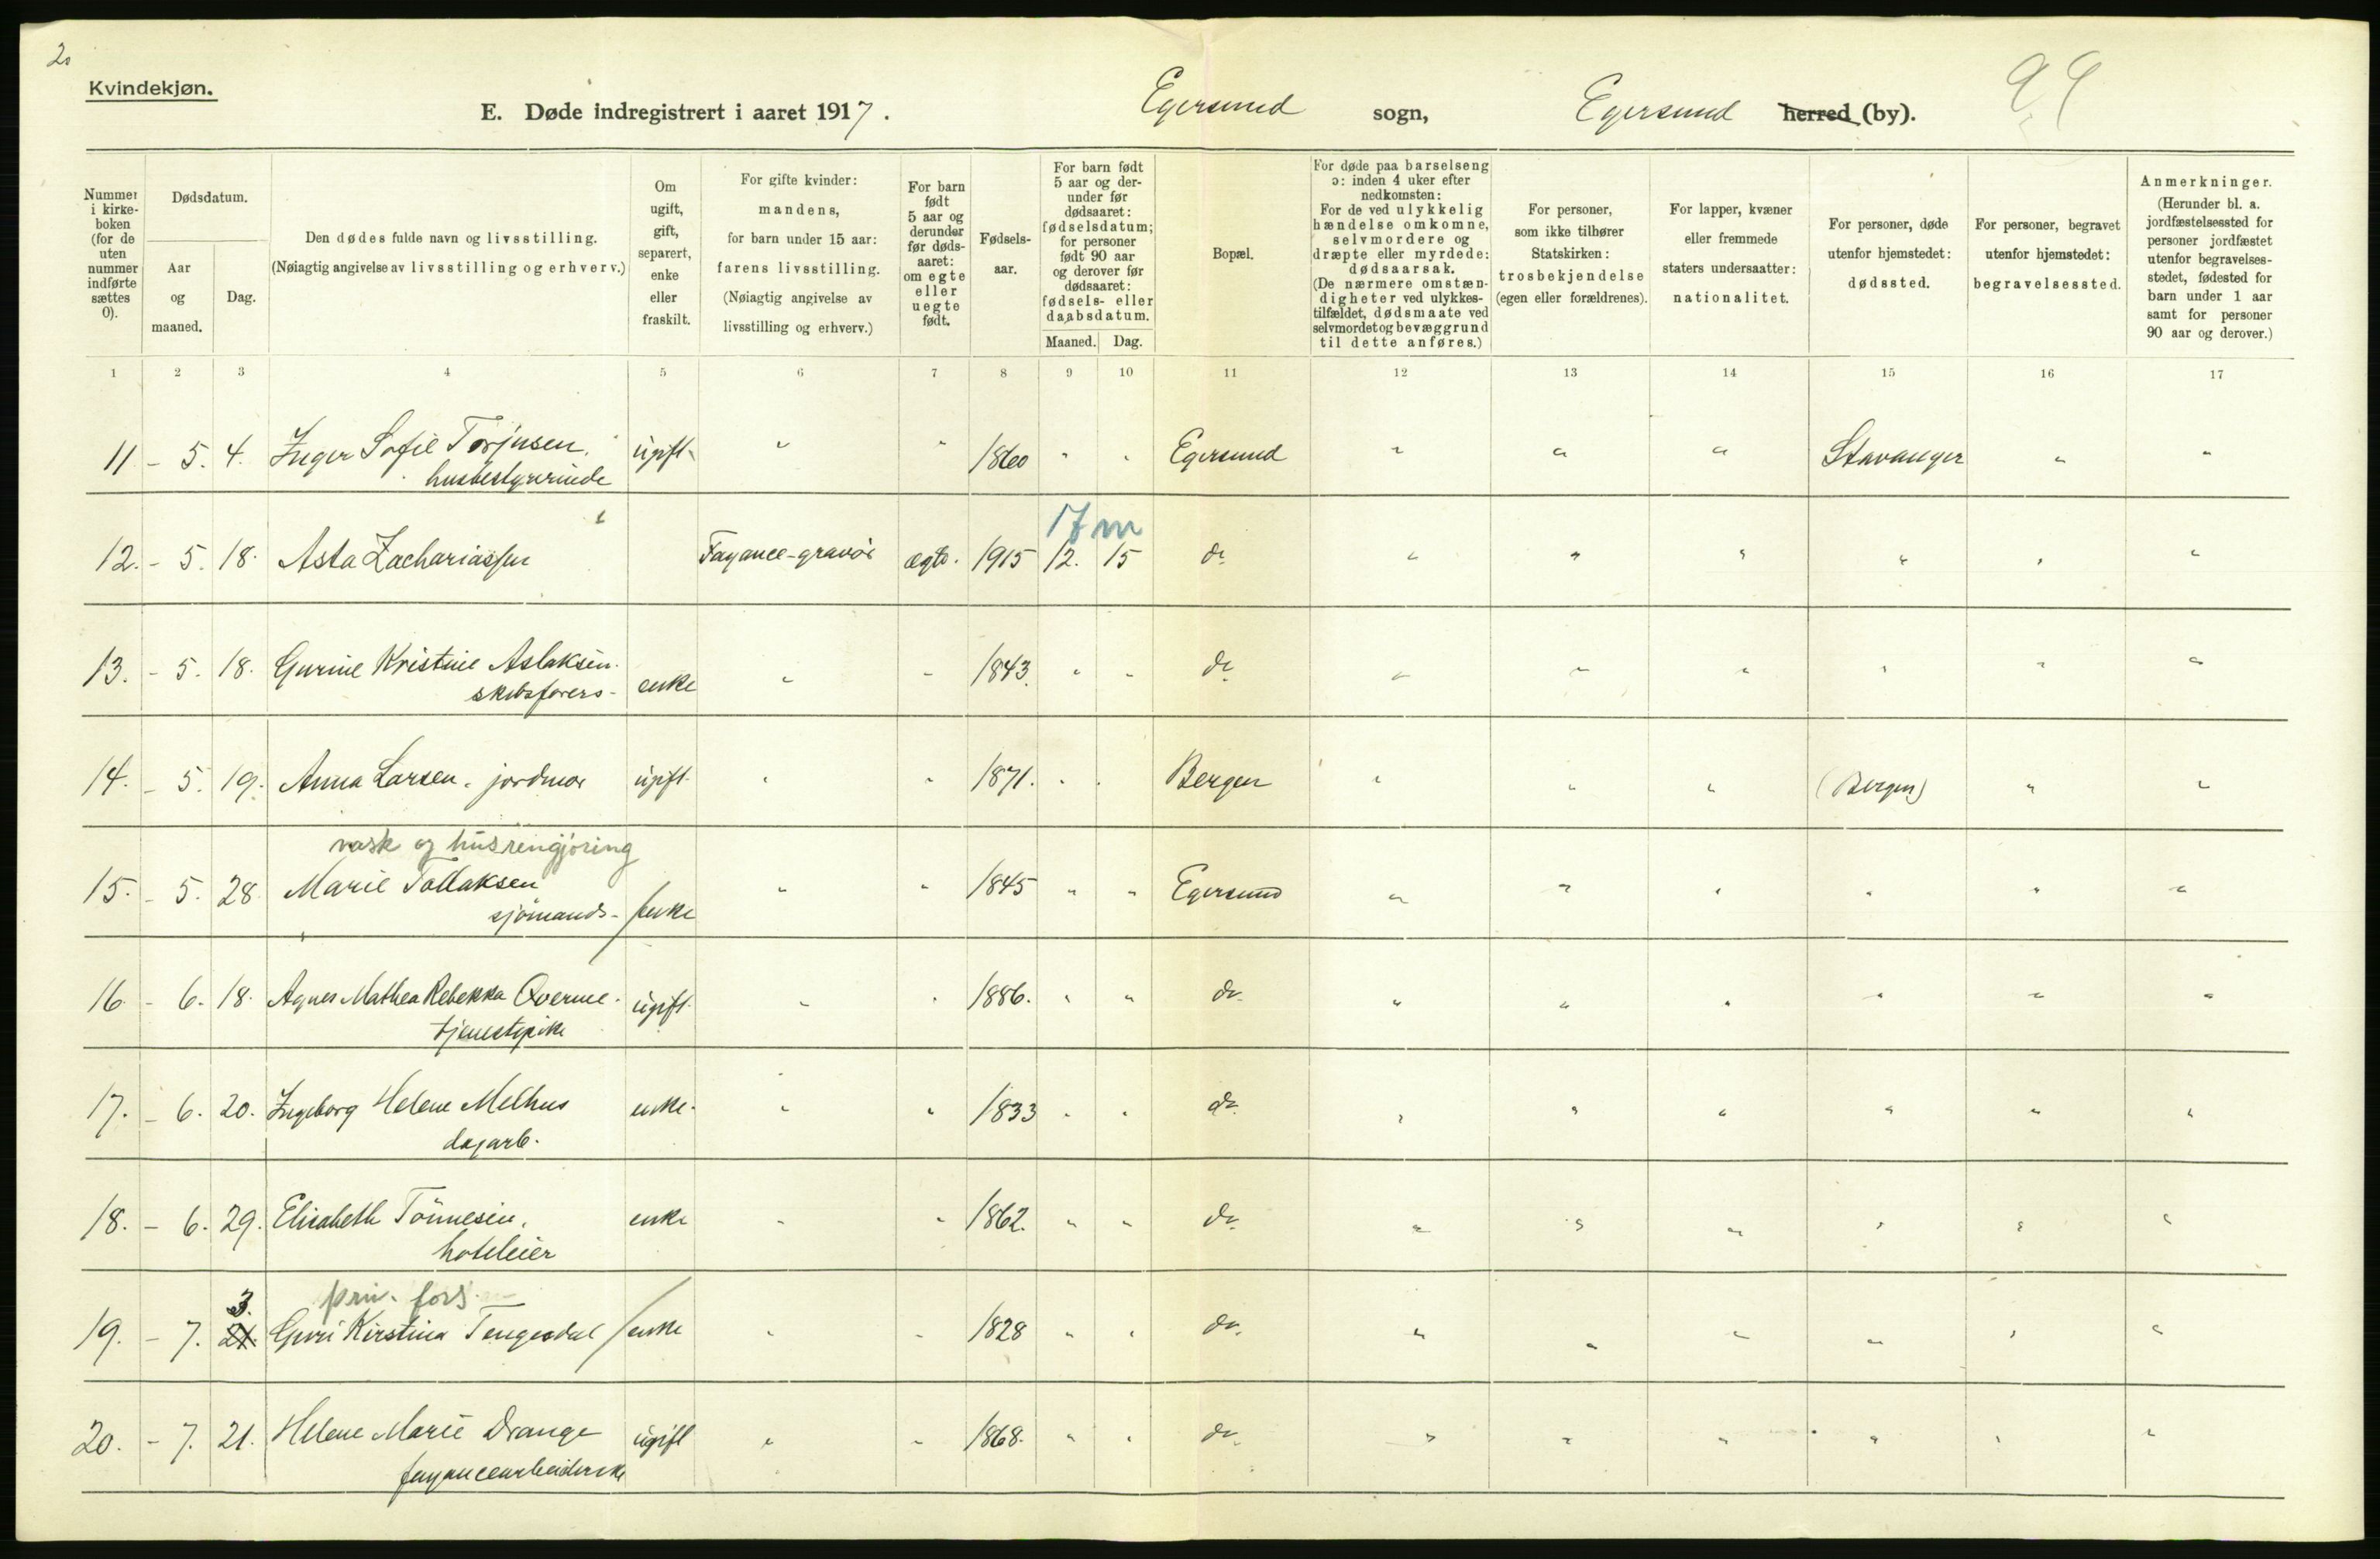 2.
Kvindekjøn.
E. Døde indregistrert i aaret 1917. Egersund sogn, Egersund herred (by).
Nummer i kirkeboken (for de uten nummer indførte sættes 0).
Dødsdatum.
Aar og maaned.
Dag.
Den dødes fulde navn og livsstilling.
(Nøiagtig angivelse av livsstilling og erhverv.)
Om ugift, gift, separert, enke eller fraskilt.
For gifte kvinder: mandens, for barn under 15 aar: farens livsstilling. (Nøiagtig angivelse av livsstilling og erhverv.)
For barn født 5 aar og derunder før dødsaaret: om egte eller uegte født.
Fødselsaar.
For barn født 5 aar og derunder før dødsaaret: fødselsdatum; for personer født 90 aar og derover før dødsaaret: fødsels- eller daabsdatum.
Maaned. Dag.
Bopæl.
For døde paa barselseng ɔ: inden 4 uker efter nedkomsten: For de ved ulykkelig hændelse omkomne, selvmordere og dræpte eller myrdede: dødsaarsak. (De nærmere omstændigheter ved ulykkestilfældet, dødsmaate ved selvmordet og bevæggrund til dette anføres.)
For personer, som ikke tilhører Statskirken: trosbekjendelse (egen eller forældrenes).
For lapper, kvæner eller fremmede staters undersaatter: nationalitet.
For personer, døde utenfor hjemstedet: dødssted.
For personer, begravet utenfor hjemstedet: begravelsessted.
Anmerkninger. (Herunder bl. a. jordfæstelsessted for personer jordfæstet utenfor begravelsesstedet, fødested for barn under 1 aar samt for personer 90 aar og derover.)
1 2 3 4 5 6 7 8 9 10 11 12 13 14 15 16 17
11 - 5. 4. Inger Sofie Torjusen, ugift " " 1860 " " Egersund " " " Stavanger " "
husbestyrerinde
17 m
12. - 5. 18. Asta Zachariassen Fayance-gravør egte. 1915 12. 15 do " " " " " "
13. - 5. 18. Gurine Kristine Aslaksen. enke " " 1843. " " do " " " " " "
skibsførers-
14. - 5. 19. Anna Larsen. jordmor ugift. " " 1871. " " Bergen " " " (Bergen) " "
vask og husrengjøring
15. - 5. 28. Marie Tollaksen / enke " " 1845 " " Egersund " " " " " "
sjømands-
16 - 6. 18. Agnes Mathea Rebekka Qverme. ugift. " " 1886. " " do. " " " " " "
tjenestepike
17. - 6. 20. Ingeborg Helene Melhus enke. " " 1833 " " do. " " " " " "
dagarb.
18. - 6. 29. Elisabeth Tönnesen, enke " " 1862. " " do. " " " " " "
hoteleier
3. priv. fors.
19. - 7. 21. Guri Kirstina Tengesdal / enke " " 1828 " " do. " " " " " "
20. - 7. 21. Helene Marie Drange ugift " " 1868. " " do. " " " " " "
fayancearbeiderske